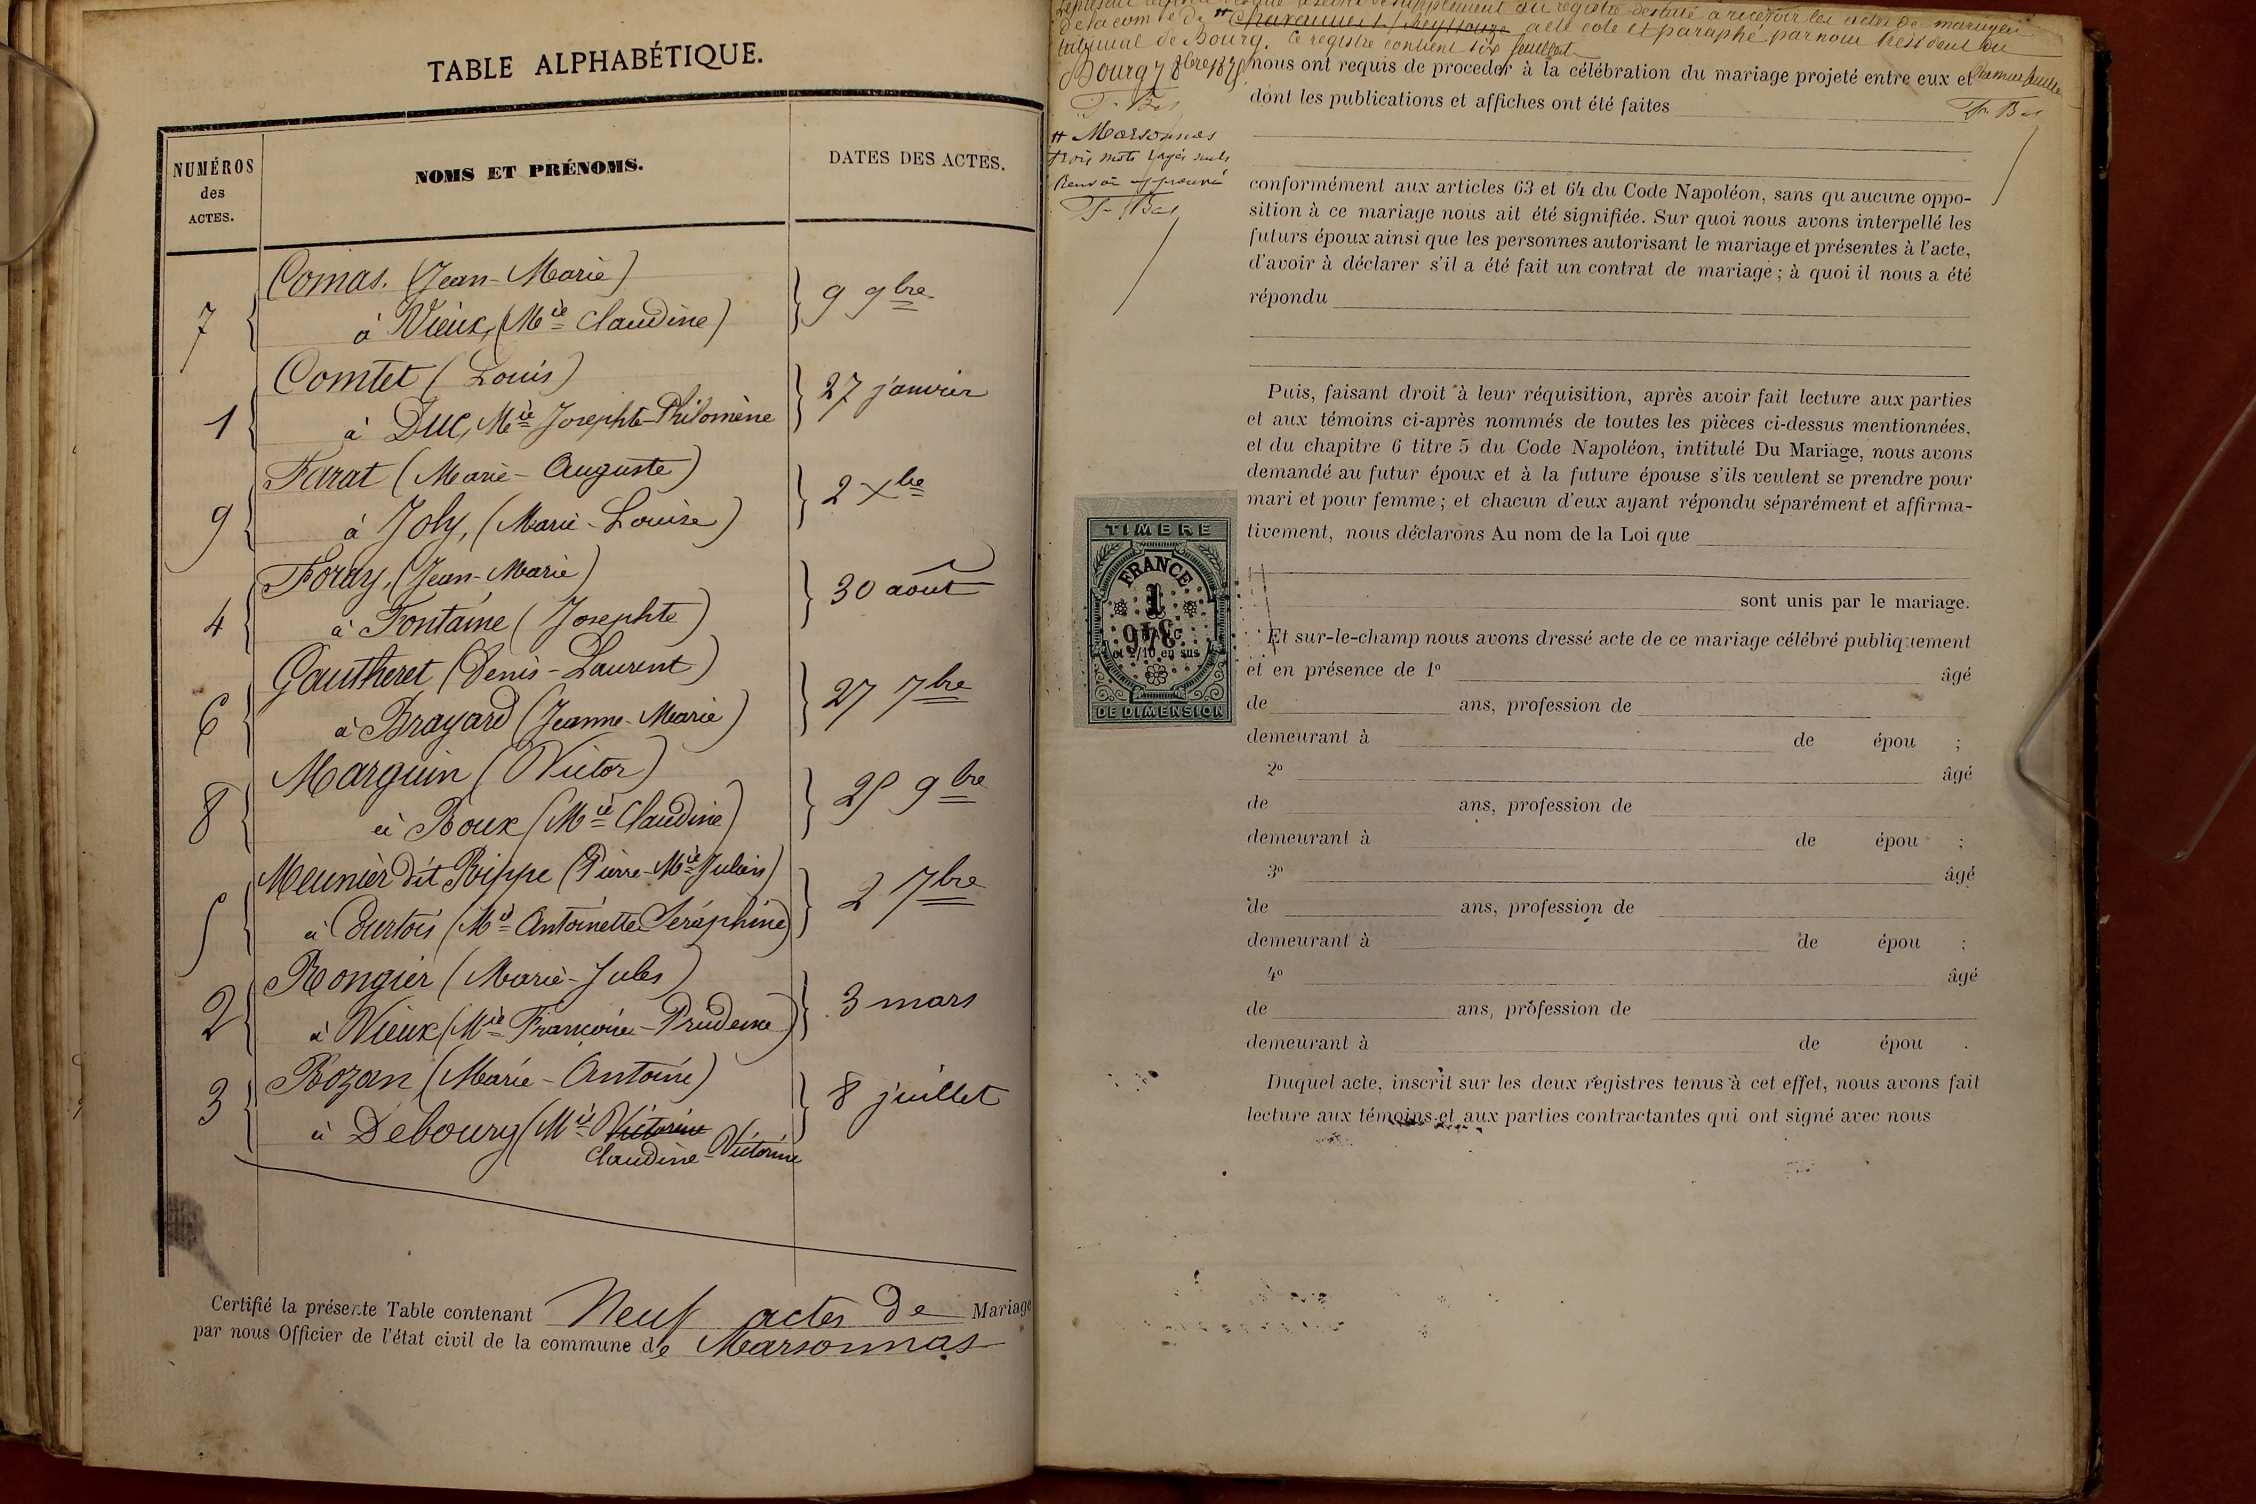 TABLE ALPHABÉTIQUE.
NUMÉROS
des
ACTES.
NOMS ET PRÉNOMS.
DATES DES ACTES.
7 Comas. (Jean-Marie)
à Vieux, (Mie Claudine) 9 9bre
1 Comtet (Louis)
à Duc, Mie Josephte-Philomène 27 janvier
9 Farat (Marie-Auguste)
à Joly, (Marie-Louise) 2 Xbre
4 Foray, (Jean-Marie)
à Fontaine (Josephte) 30 août
6 Gautheret (Denis-Laurent)
à Brayard (Jeanne-Marie) 27 7bre
8 Marguin (Victor)
à Roux (Mie Claudine) 25 9bre
5 Meunier dit Rippe (Pierre-Mie Julien)
à Courtois (Mie Antoinette Séraphine) 2 7bre
2 Rongier (Marie-Jules)
à Vieux (Mie Françoise-Prudence) 3 mars
3 Rozan (Marie-Antoine)
à Debourg (Mie Victorine 8 juillet
Claudine-Victorine
Certifié la présente Table contenant Neuf actes de Mariage
par nous Officier de l'état civil de la commune de Marsonnas
supplément au registre destiné à recevoir les actes de mariages
de la com de # Chavannes s/ Reyssouze a été coté et paraphé par nous Président du
tribunal de Bourg. Ce registre contient six feuillets
Bourg 7 8bre
Fr. Bas
# Marsonnas
trois mots rayés nuls
Renvoi approuvé
Fr. Bas
nous ont requis de procéder à la célébration du mariage projeté entre eux et
dont les publications et affiches ont été faites
Fr. Bas
conformément aux articles 63 et 64 du Code Napoléon, sans qu aucune oppo-
sition à ce mariage nous ait été signifiée. Sur quoi nous avons interpellé les
futurs époux ainsi que les personnes autorisant le mariage et présentes à l'acte,
d'avoir à déclarer s'il a été fait un contrat de mariage ; à quoi il nous a été
répondu
Puis, faisant droit à leur réquisition, après avoir fait lecture aux parties
et aux témoins ci-après nommés de toutes les pièces ci-dessus mentionnées,
et du chapitre 6 titre 5 du Code Napoléon, intitulé Du Mariage, nous avons
demandé au futur époux et à la future épouse s'ils veulent se prendre pour
mari et pour femme ; et chacun d'eux ayant répondu séparément et affirma-
tivement, nous déclarons Au nom de la Loi que
sont unis par le mariage.
TIMBRE
FRANCE
1
946
et 2/10 en sus
DE DIMENSION
Et sur-le-champ nous avons dressé acte de ce mariage célébré publiquement
et en présence de 1º âgé
de ans, profession de
demeurant à de épou ;
2º âgé
de ans, profession de
demeurant à de épou ;
3º âgé
de ans, profession de
demeurant à de épou ;
4º âgé
de ans, profession de
demeurant à de épou .
Duquel acte, inscrit sur les deux registres tenus à cet effet, nous avons fait
lecture aux témoins et aux parties contractantes qui ont signé avec nous